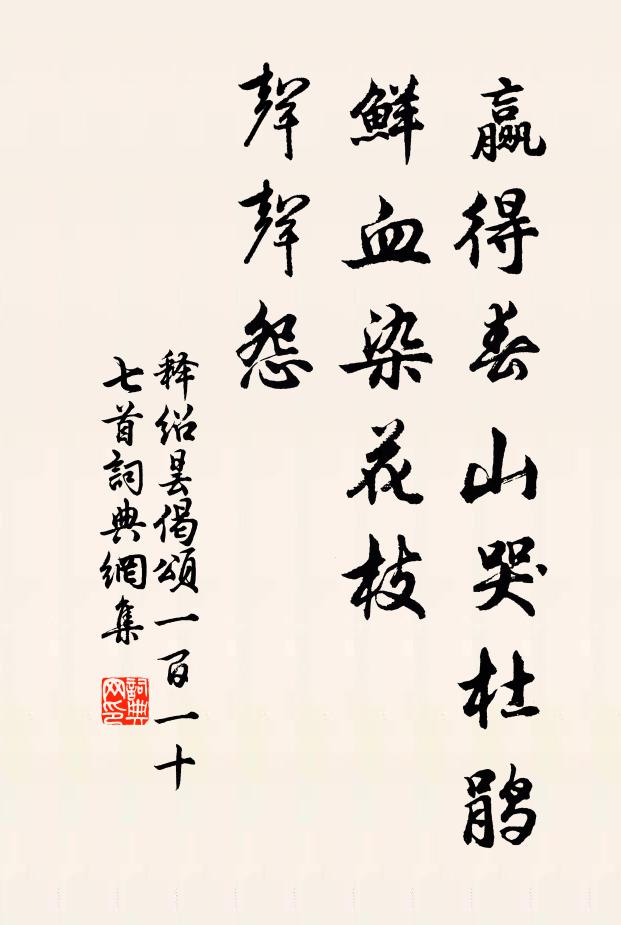 赢得春山哭杜鹃
鲜血染花枝
聲聲怨
释绍昙偈頌一百一十
七首詞典網集
詞典
网印